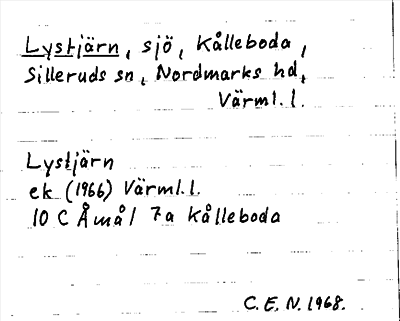 Lystjärn, sjö, Kålleboda,
Silleruds sn, Nordmarks hd,
Värml. l.
Lystjärn
ek (1966) Värml. l.
10 C Åmål 7a Kålleboda
C. E. N. 1968.